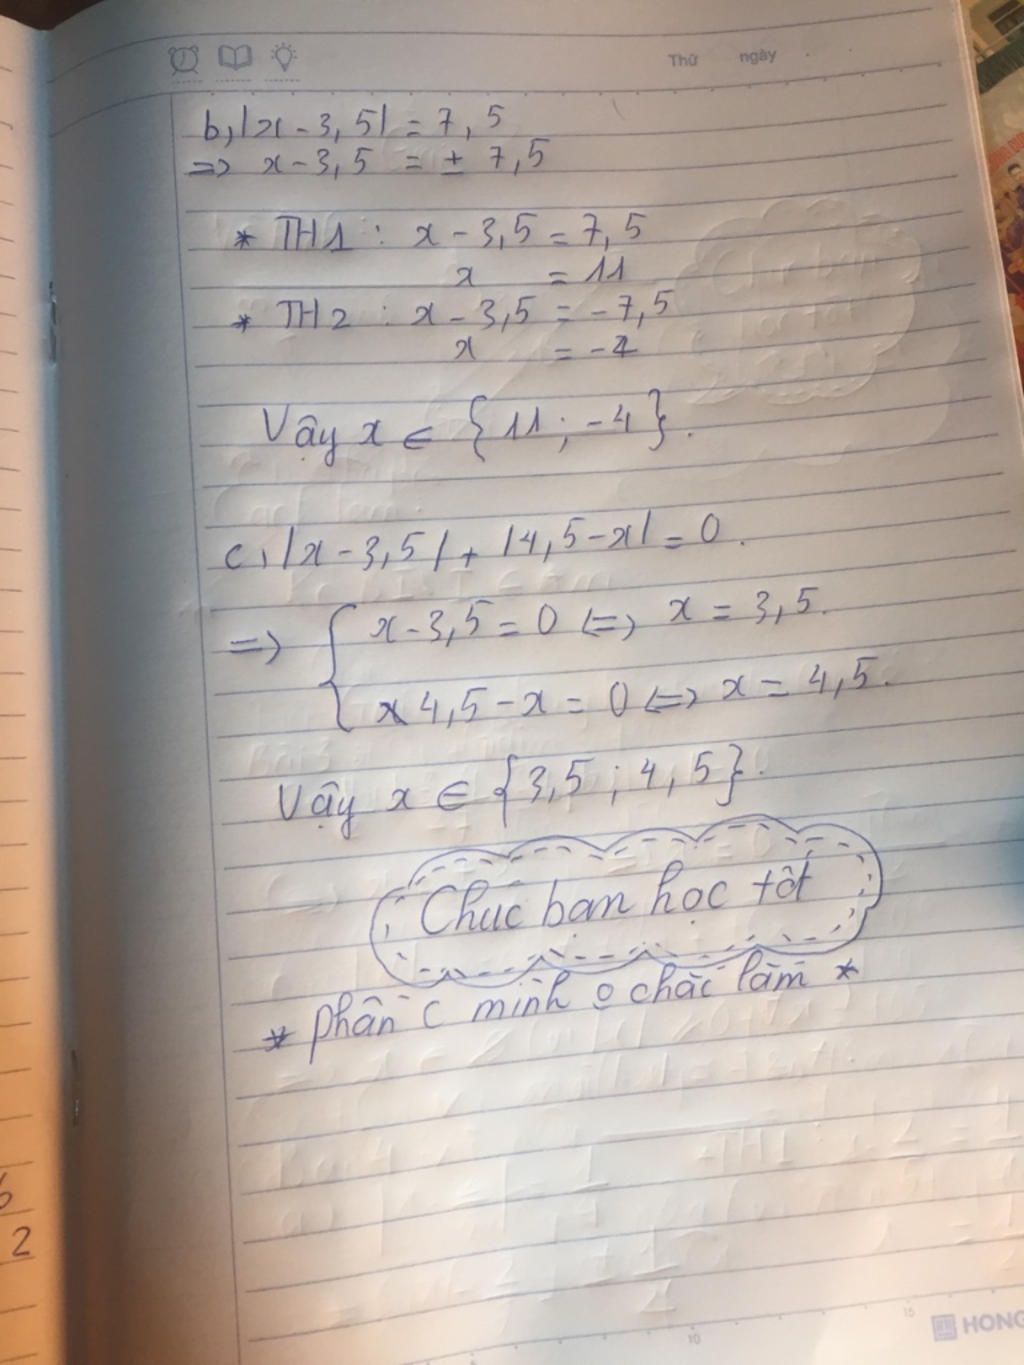 Thứ ngày
b, |x - 3,5| = 7,5
=> x - 3,5 = ± 7,5
* TH1 : x - 3,5 = 7,5
x = 11
* TH2 : x - 3,5 = -7,5
x = -4
Vậy x ∈ {11; -4}.
c, |x - 3,5| + |4,5 - x| = 0.
=> { x - 3,5 = 0 <=> x = 3,5.
4,5 - x = 0 <=> x = 4,5.
Vậy x ∈ {3,5 ; 4,5}.
Chúc bạn học tốt
* phần c mình o chắc lắm *
6
2
10
15
HONG